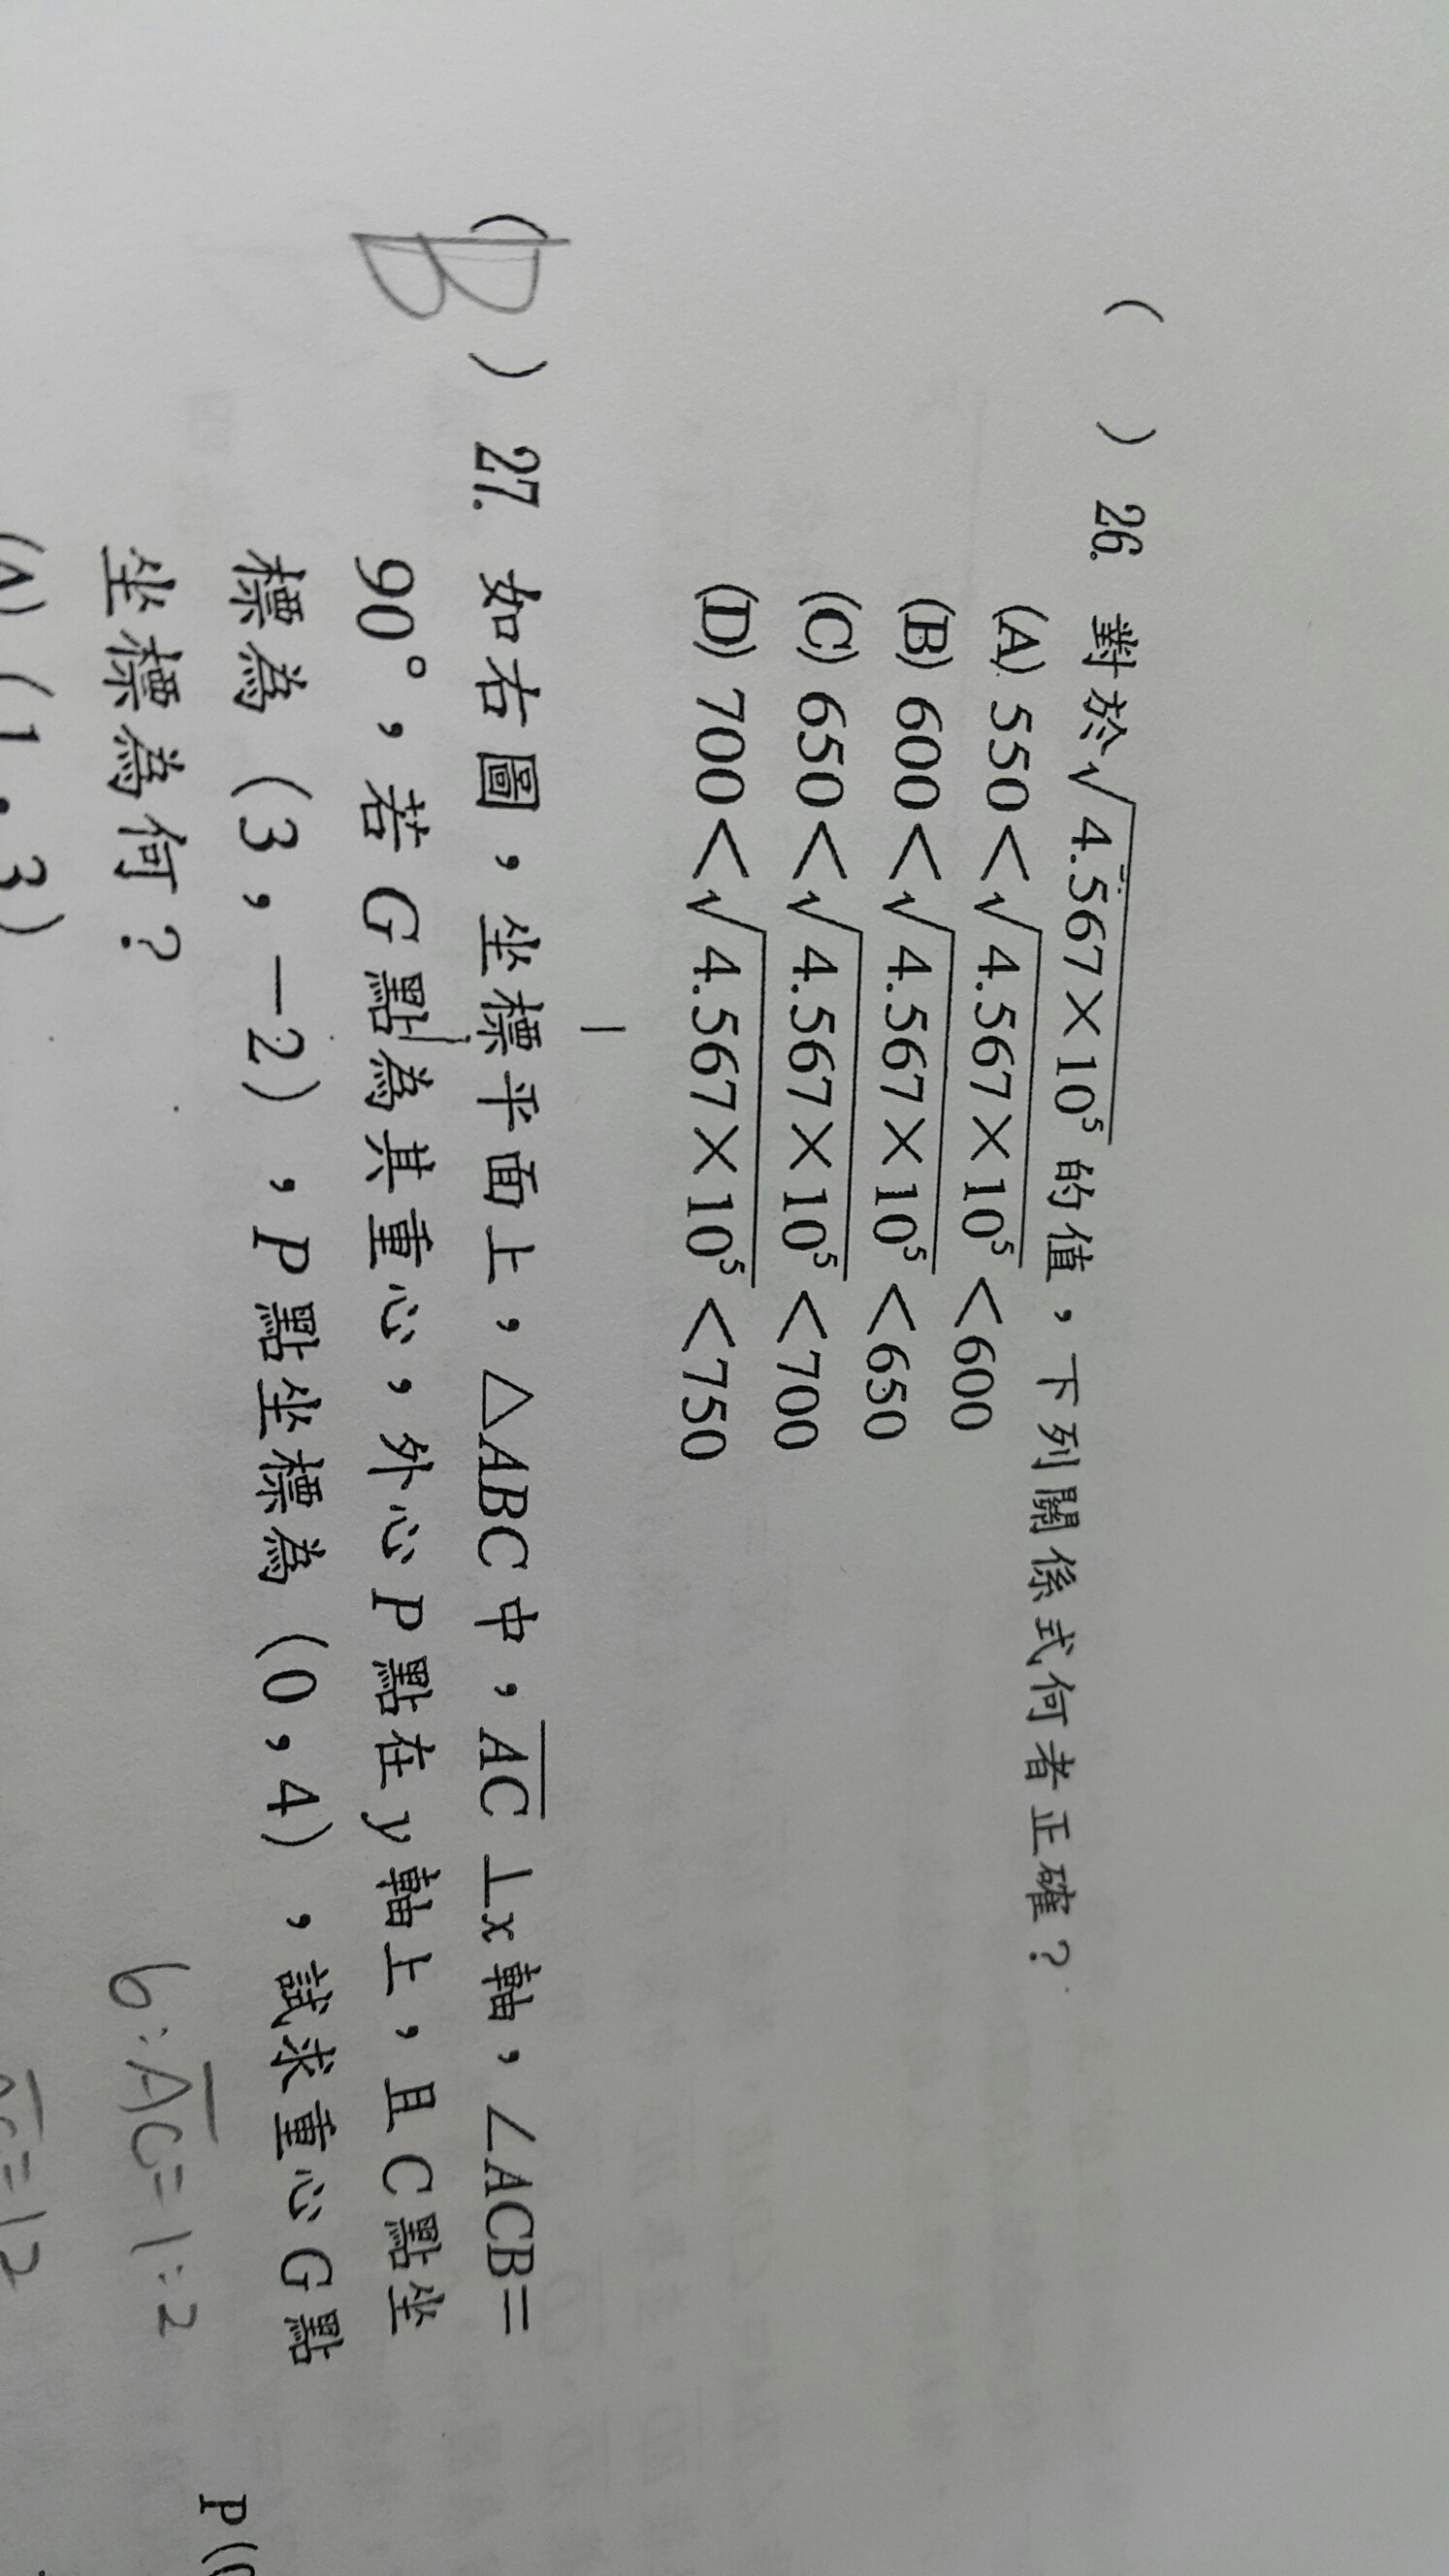 ( ) 26. 對於√4.567×10⁵ 的值，下列關係式何者正確？
(A) 550<√4.567×10⁵ <600
(B) 600<√4.567×10⁵ <650
(C) 650<√4.567×10⁵ <700
(D) 700<√4.567×10⁵ <750
(B) 27. 如右圖，坐標平面上，△ABC中，AC⊥x軸，∠ACB=
90°，若G點為其重心，外心P點在y軸上，且C點坐
標為（3，-2），P點坐標為（0，4），試求重心G點
坐標為何？
6:AC=1:2
(A) (1，3)
=12
P(0